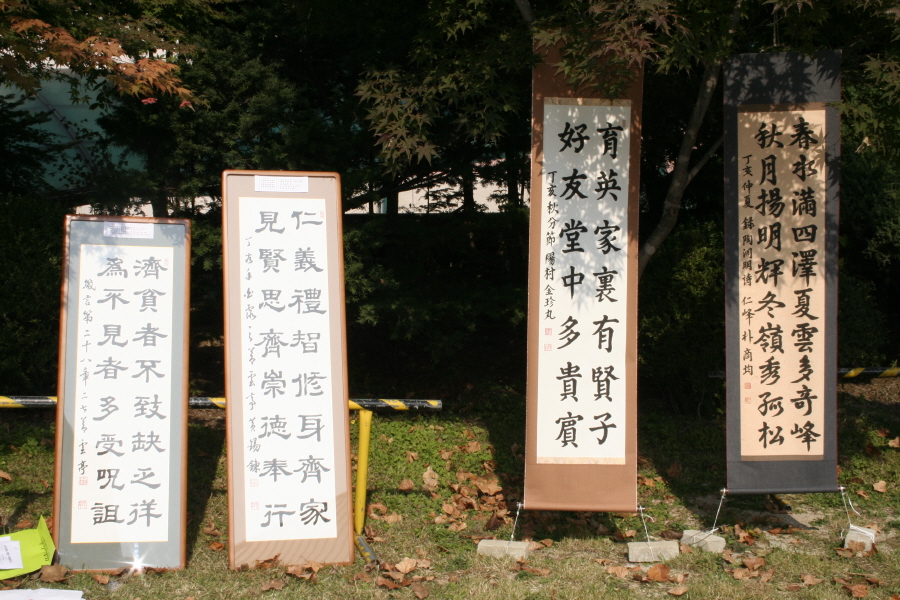 濟貧者不致缺乏佯
爲不見者多受呪詛
箴言第二十八章二七 雲亭
仁義禮智修身齊家
見賢思齊崇德奉行
丁亥 雲亭
育英家裏有賢子
好友堂中多貴賓
丁亥秋分節 陽村 金珍丸
春水満四澤夏雲多奇峰
秋月揚明輝冬嶺秀孤松
丁亥仲夏 錄陶淵明詩 仁峰 朴商均